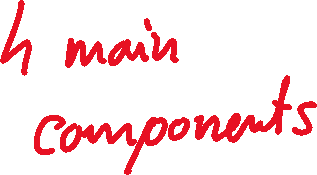 4 main
components